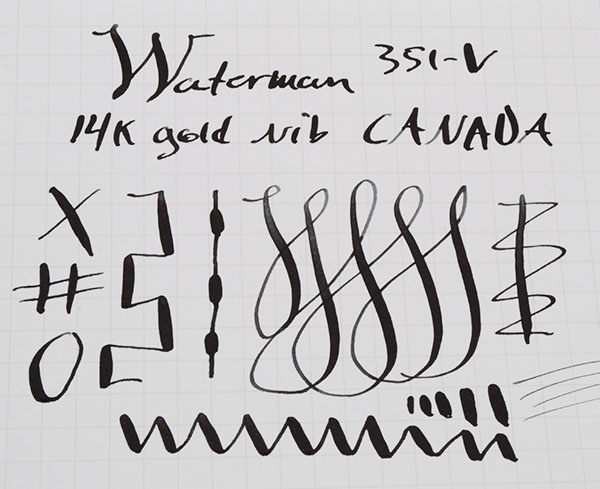 Waterman 351-V
14K gold nib CANADA
X
#
O